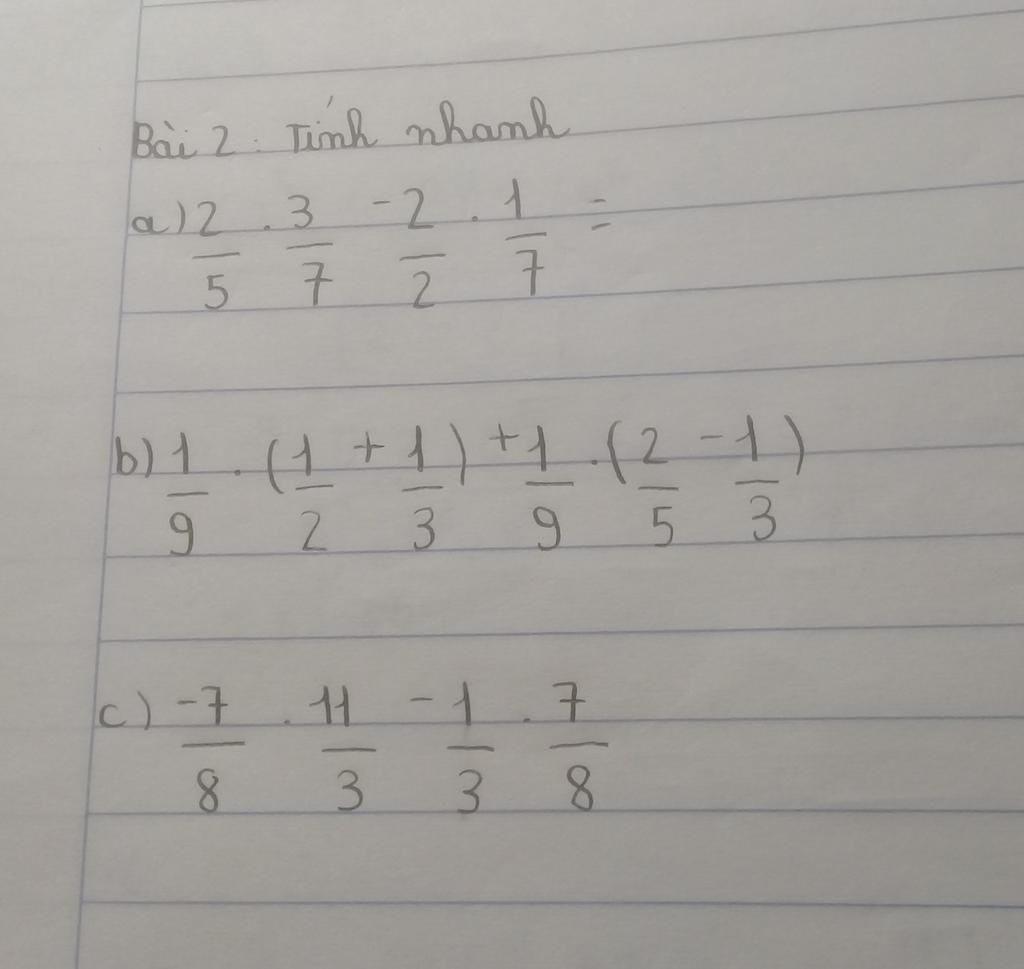 Bài 2: Tính nhanh
a) 2/5 . 3/7 - 2/2 . 1/7 =
b) 1/9 . (1/2 + 1/3) + 1/9 . (2/5 - 1/3)
c) -7/8 . 11/3 - 1/3 . 7/8